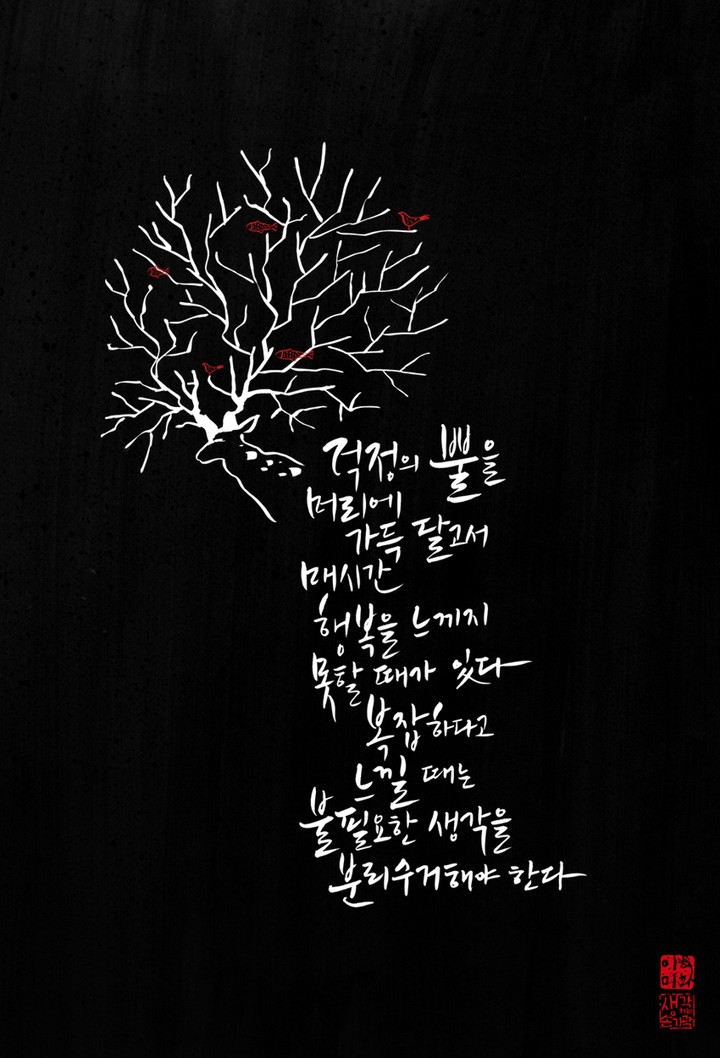 걱정의 뿔을
머리에
가득 달고서
매시간
행복을 느끼지
못할 때가 있다
복잡하다고
느낄 때는
불필요한 생각을
분리수거해야 한다